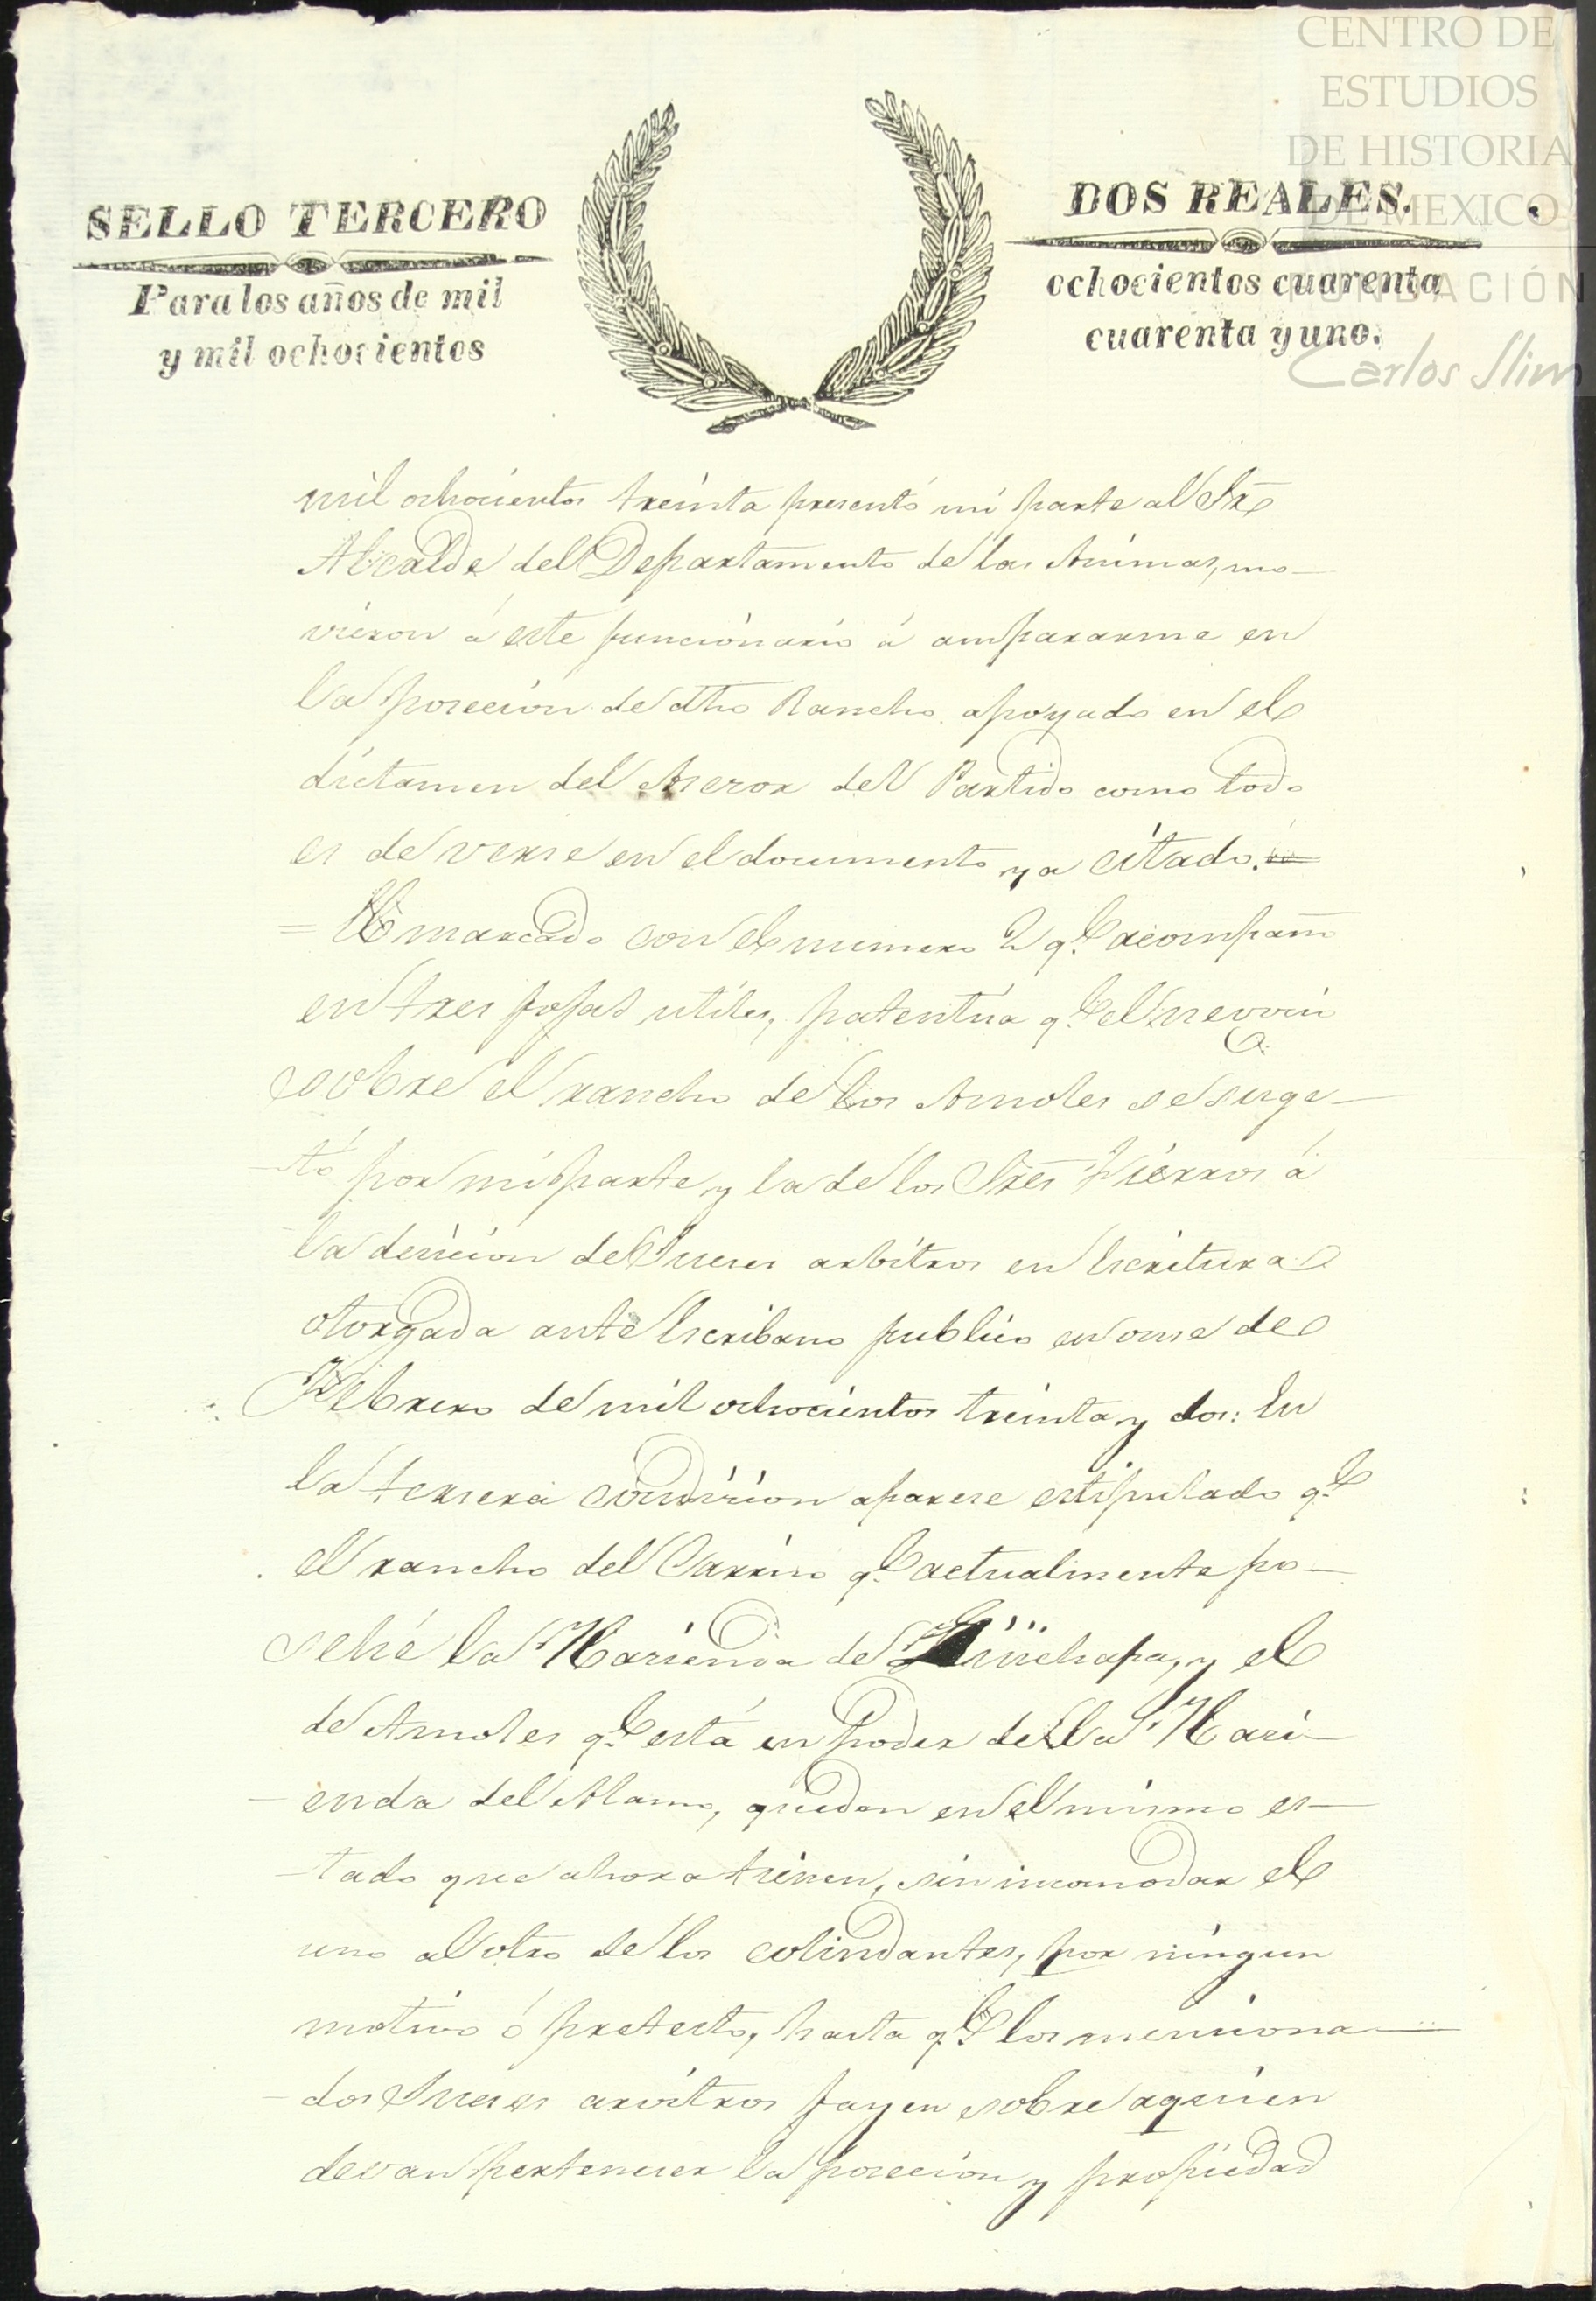 CENTRO DE
ESTUDIOS
DE HISTORIA
DE MEXICO
FUNDACIÓN
Carlos Slim
SELLO TERCERO
DOS REALES.
Para los años de mil
ochocientos cuarenta
y mil ochocientos
cuarenta y uno.
mil ochocientos treinta presentó mi parte al Sr̃
Alcalde del Departamento de las Animas, mo-
vieron á este funcionario á ampararme en
la posecion de dho Rancho apoyado en el
dictamen del Asesor del Partido como todo
es de verse en el documento ya citado.
= El marcado con el numero 2 q.e acompaño
en tres fojas utiles, patentiza q.e el negocio
sobre el rancho de los Amoles se suge-
-tó por mi parte y la de los Sres Fierros á
la decicion de Jueces arbitros en Escritura
otorgada ante Escribano publico en once de
Febrero de mil ochocientos treinta y dos: En
la tercera condicion aparece estipulado q.e
el rancho del Carrizo q.e actualmente po-
sehé la Hacienda de , y el
de Amoles q.e está en poder de la Haci-
-enda del Alamo, quedan en el mismo es-
-tado que ahora tienen, sin incomodar el
uno al otro de los colindantes, por ningun
motivo ó pretesto, hasta q.e los menciona-
-dos Jueces arvitros fayen sobre aquien
devan pertenecer la posecion y propiedad